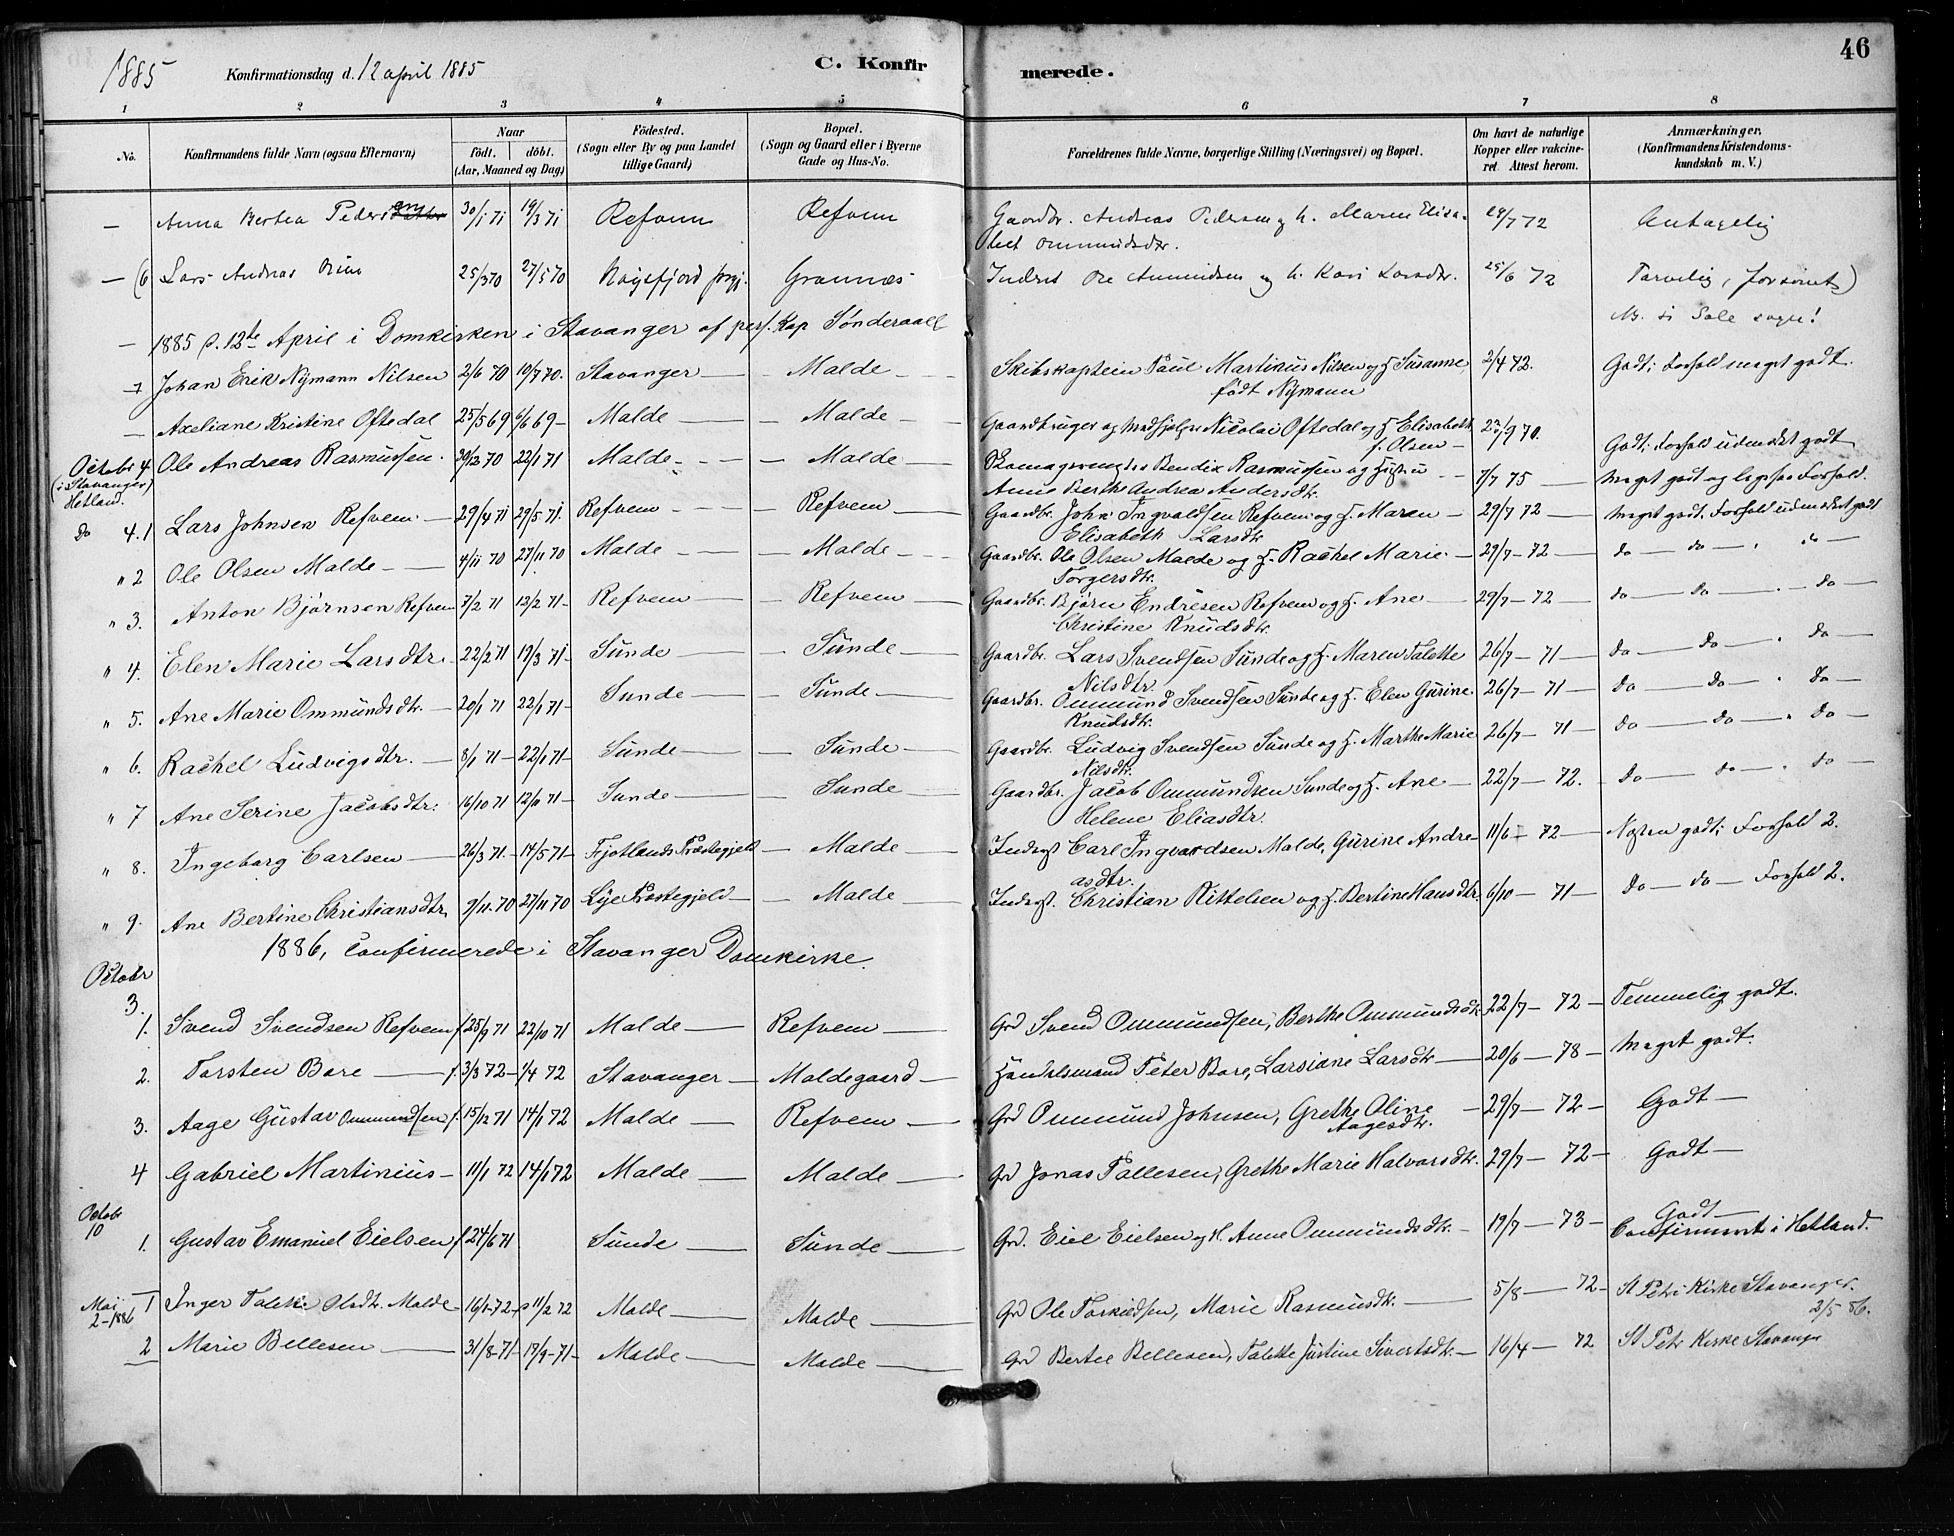 1885 Konfirmationsdag d. 12 april 1885 C. Konfirmerede. 46
1 2 3 4 5 6 7 8
No. Konfirmandens fulde Navn (ogsaa Efternavn) Naar født. døbt. (Aar, Maaned og Dag) Födested. (Sogn eller By og paa Landet tillige Gaard) Bopæl. (Sogn og Gaard eller i Byerne Gade og Hus-No.) Forældrenes fulde Navne, borgerlige Stilling (Næringsvei) og Bopæl. Om havt de naturlige Kopper eller vakcineret Attest herom. Anmærkninger. (Konfirmandens Kristendomskundskab m. V.)
— Anna Bertea Pedersen 30/1 71 19/3 71 Refvem Refvem Gaardbr. Andreas Pedersen og h. Maren Elisabet Ommundsdtr. 29/7 72 Antagelig
— (6 Lars Andreas 25/3 70 27/5 70 Høgsfjord prgj. Grannes Inderst Ole Amundsen og h. Kari Larsdtr. 25/6 72 Tarvelig,
— 1885 d. 12te April i Domkirken i Stavanger af pers. Kap Sønderaall
Johan Erik Nymann Nilsen 2/6 70 10/7 70. Stavanger — Malde — Skibskaptein Paul Martinus Nilsen og H. Susanne født Nymann 2/4 72. Godt; Forhold meget godt.
— Axeliane Kristine Oftedal 25/5 69 6/6 69 — Malde — Malde — Gaardbruger og Nicolai Oftedal og H. Elisabeth f. Olsen — 23/9 70. Godt; Forhold udmerket godt
Octobr 4 (i Stavanger) Hetland. Ole Andreas Rasmussen. 29/12 70 22/1 71 Malde — Malde — Bendix Rasmussen og Hustru Anne Berthe Andrea Andersdtr. 7/7 75 — Meget godt og Forhold.
Do 4.1 Lars Johnsen Refvem — 29/4 71 29/5 71. Refvem — Refvem — Gaardbr. John Ingvaldsen Refvem og H. Maren Elisabeth Larsdtr 29/7 72 — Meget godt. Forhold udmerket godt
" 2 Ole Olsen Malde — 4/11 70 27/11 70 Malde — Malde — Gaardbr. Ole Olsen Malde og H. Rachel Marie Torgersdtr. — 29/7 — 72 — do — do — do —
" 3. Anton Bjørnsen Refvem 7/2 71 12/2 71 — Refvem — Refvem — Gaardbr. Bjørn Endresen Refvem og H. Ane Christine Knudsdtr. — 29/7 — 72 — do — do — do —
" 4. Elen Marie Larsdtr. 22/2 71 19/3 71. Sunde — Sunde — Gaardbr. Lars Svendsen Sunde og H. Maren Talette Nilsdtr. 26/7 — 71 — do — do — do —
" 5. Ane Marie Ommundsdtr. — 20/1 71 22/1 71 — Sunde — Sunde — Gaardbr. Ommund Svendsen Sunde og H. Elen Gurine Knudsdtr. 26/7 — 71 — do — do — do —
" 6. Rachel Ludvigsdtr. — 8/1 71 — 22/1 71 — Sunde — Sunde — Gaardbr. Ludvig Svendsen Sunde og H. Marthe Marie Nilsdtr. 26/7 — 71 — do — do — do —
" 7 Ane Serine Jacobsdtr: 16/10 71 12/11 71 — Sunde — Sunde — Gaardbr. Jacob Ommundsen Sunde og H. Ane Helene Eliasdtr. 22/7 — 72. do — do — do —
" 8. Ingeborg Carlsen — 26/3 71. — 14/5 71 — Fjotlands Præstegjeld — Malde — Indergst Carl Ingvardsen Malde, Gurine Andreasdtr. 11/6 — 72 — Næsten godt; Forhold 2.
" 9. Ane Bertine Christiansdtr 9/11 70 27/11 70 Lye Præstegjeld — Malde — Indergst. Christian Kittelsen og H. Bertine Hansdtr. 6/10 — 71 — Do — do — Forhold 2.
1886, Confirmerede i Stavanger Domkirke.
Octobr
3.
1. Svend Svendsen Refvem f 25/9 71 22/10 71 Malde — Refvem — Grd Svend Ommundsen, Berthe Ommundsdtr 22/7 — 72 — Temmelig godt.
2. Torsten Bore — f. 3/3 72 — 1/4 72 Stavanger — Maldegaard — Handelsmand Peter Bore, Larsiane Larsdtr — 20/6 — 78 — Meget godt.
3. Aage Gustav Ommundsen f. 15/12 71 14/1 72 Malde — Refvem — Grd Ommund Johnsen, Grethe Oline Aagesdtr. — 29/7 — 72 — Godt —
4 Gabriel Martinius — 11/1 72 14/1 72 Malde — Malde — Grd Jonas Tallesen, Grethe Marie Halvorsdtr. 29/7 — 72 — Godt —
Octobr 10 1. Gustav Emanuel Eielsen f 24/6 71 Sunde — Sunde — Grd. Eiel Eielsen og H. Anne Ommundsdtr. — 19/7 — 73 — Godt — Confirmert i Hetland.
Mai 2 — 1886 1 Inger Talette Olsdtr. Malde — 16/1 — 72 — 11/2 72 Malde — Malde — Grd Ole Torkildsen, Marie Rasmusdtr. — 5/8 — 72 — St Petri Kirke Stavanger. 2/5 86.
2 Marie Bellesen — 31/8 — 71 — 17/9 — 71 — Malde — Malde — Grd Bertel Bellesen, Talette Justine Sivertsdtr. — 16/4 — 72 St Petr Kirke Stavanger